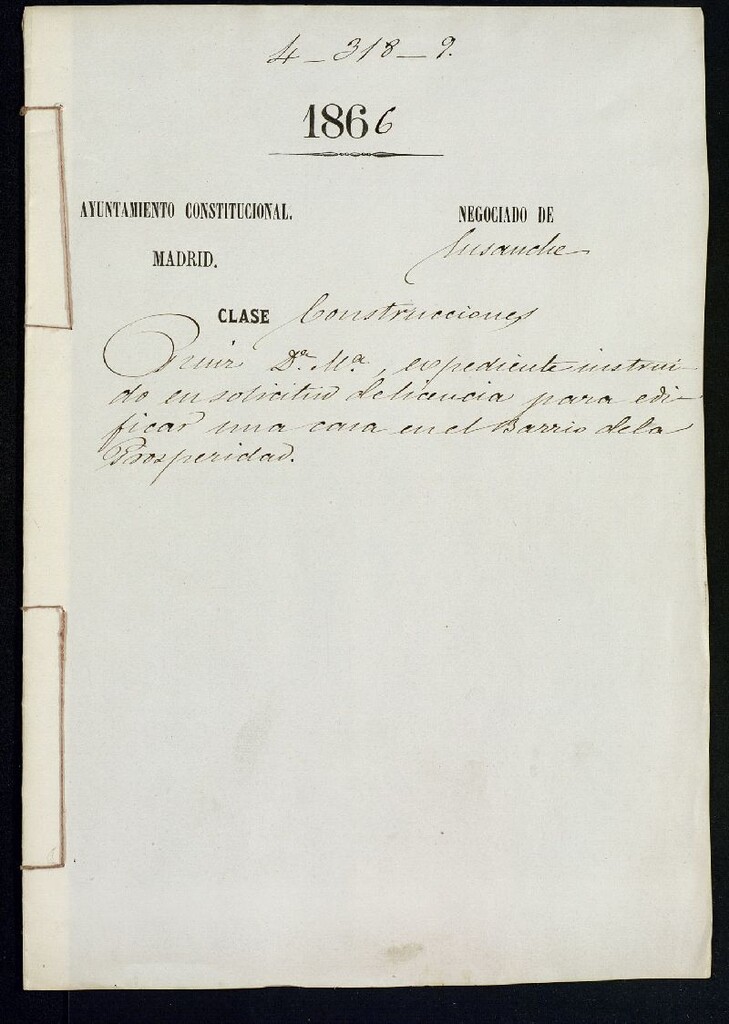 4-318-9.
1866
AYUNTAMIENTO CONSTITUCIONAL.
MADRID.
NEGOCIADO DE
Ensanche
CLASE Construcciones
Dª. Mª, expediente instrui
do en solicitud de licencia para edi-
ficar una casa en el Barrio de la
Prosperidad.